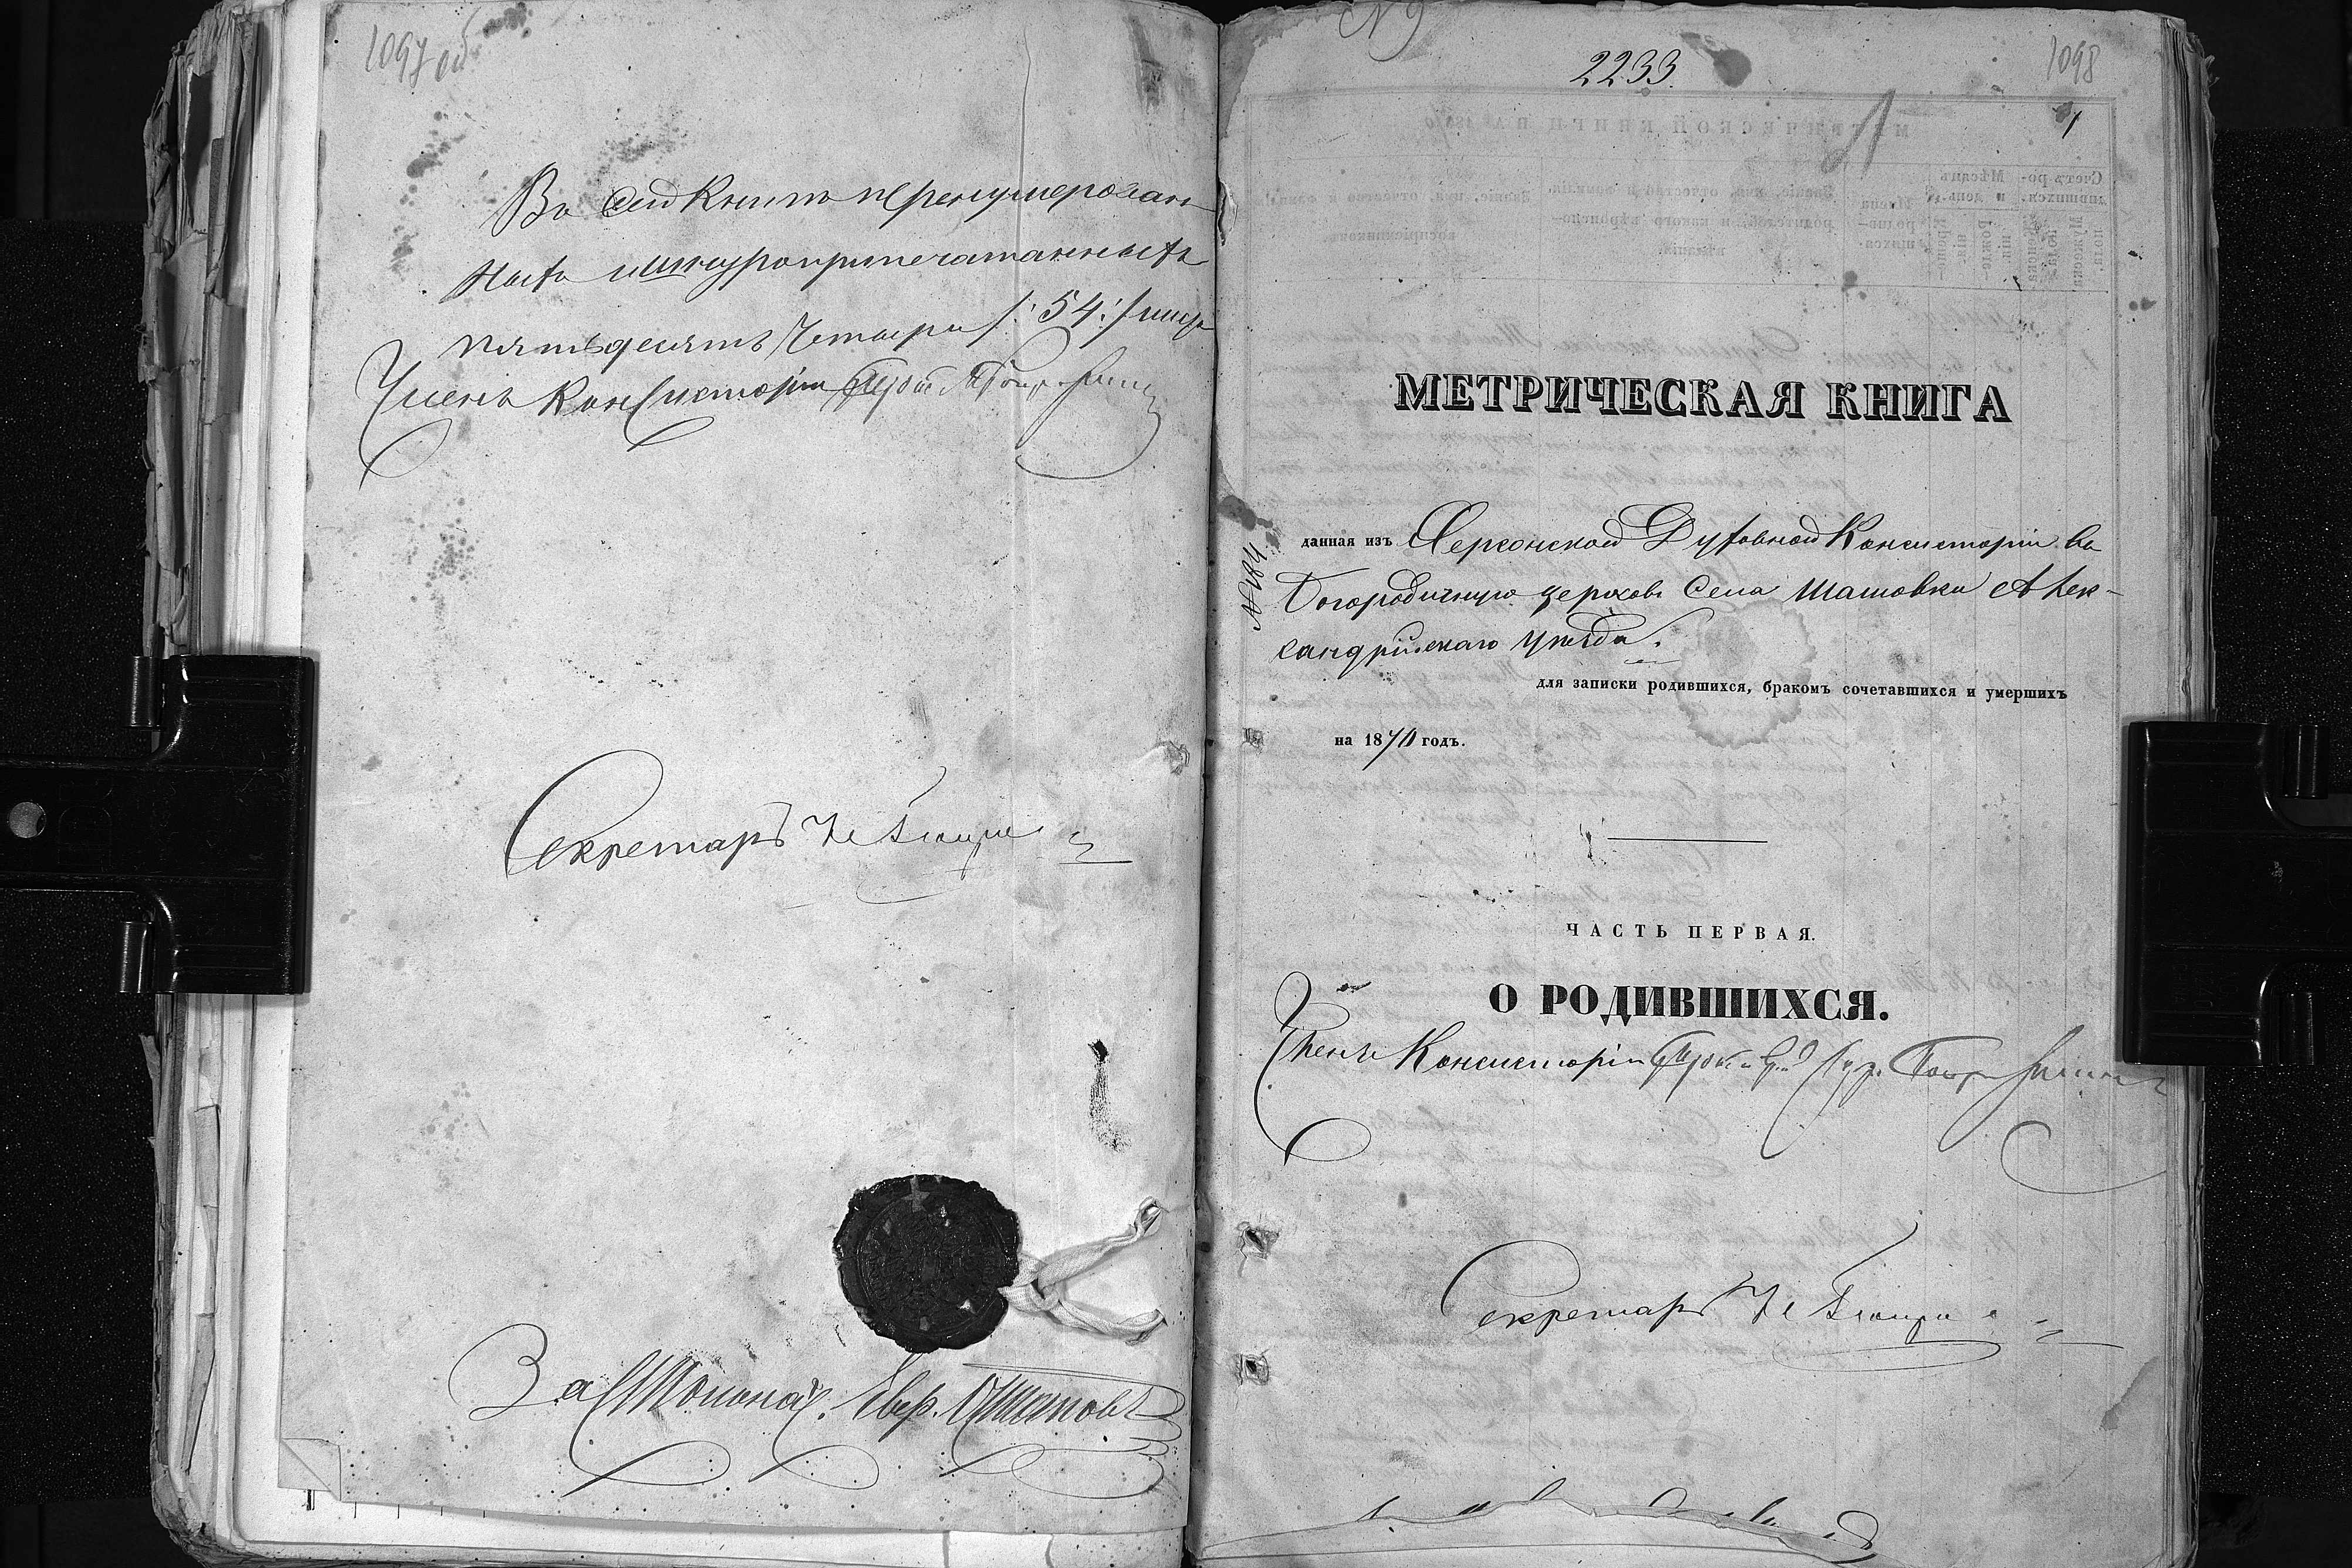 1097 об
Во сей Книге перенумерован
ныхъ и шнуроприпечатанныхъ
пятьдесятъ четыри /:54:/ лист
Членъ Консисторіи Прот.
Секретарь
За Столонач. Евф.
N 9
2233.
1098
1
МЕТРИЧЕСКАЯ КНИГА
данная изъ Херсонской Духовной Консисторіи въ
Богородичную церковь села Шамовки Алек-
сандрійскаго уѣзда.
для записки родившихся, бракомъ сочетавшихся и умершихъ
на 1870 годъ.
ЧАСТЬ ПЕРВАЯ.
О РОДИВШИХСЯ.
Членъ Консисторіи
Секретарь